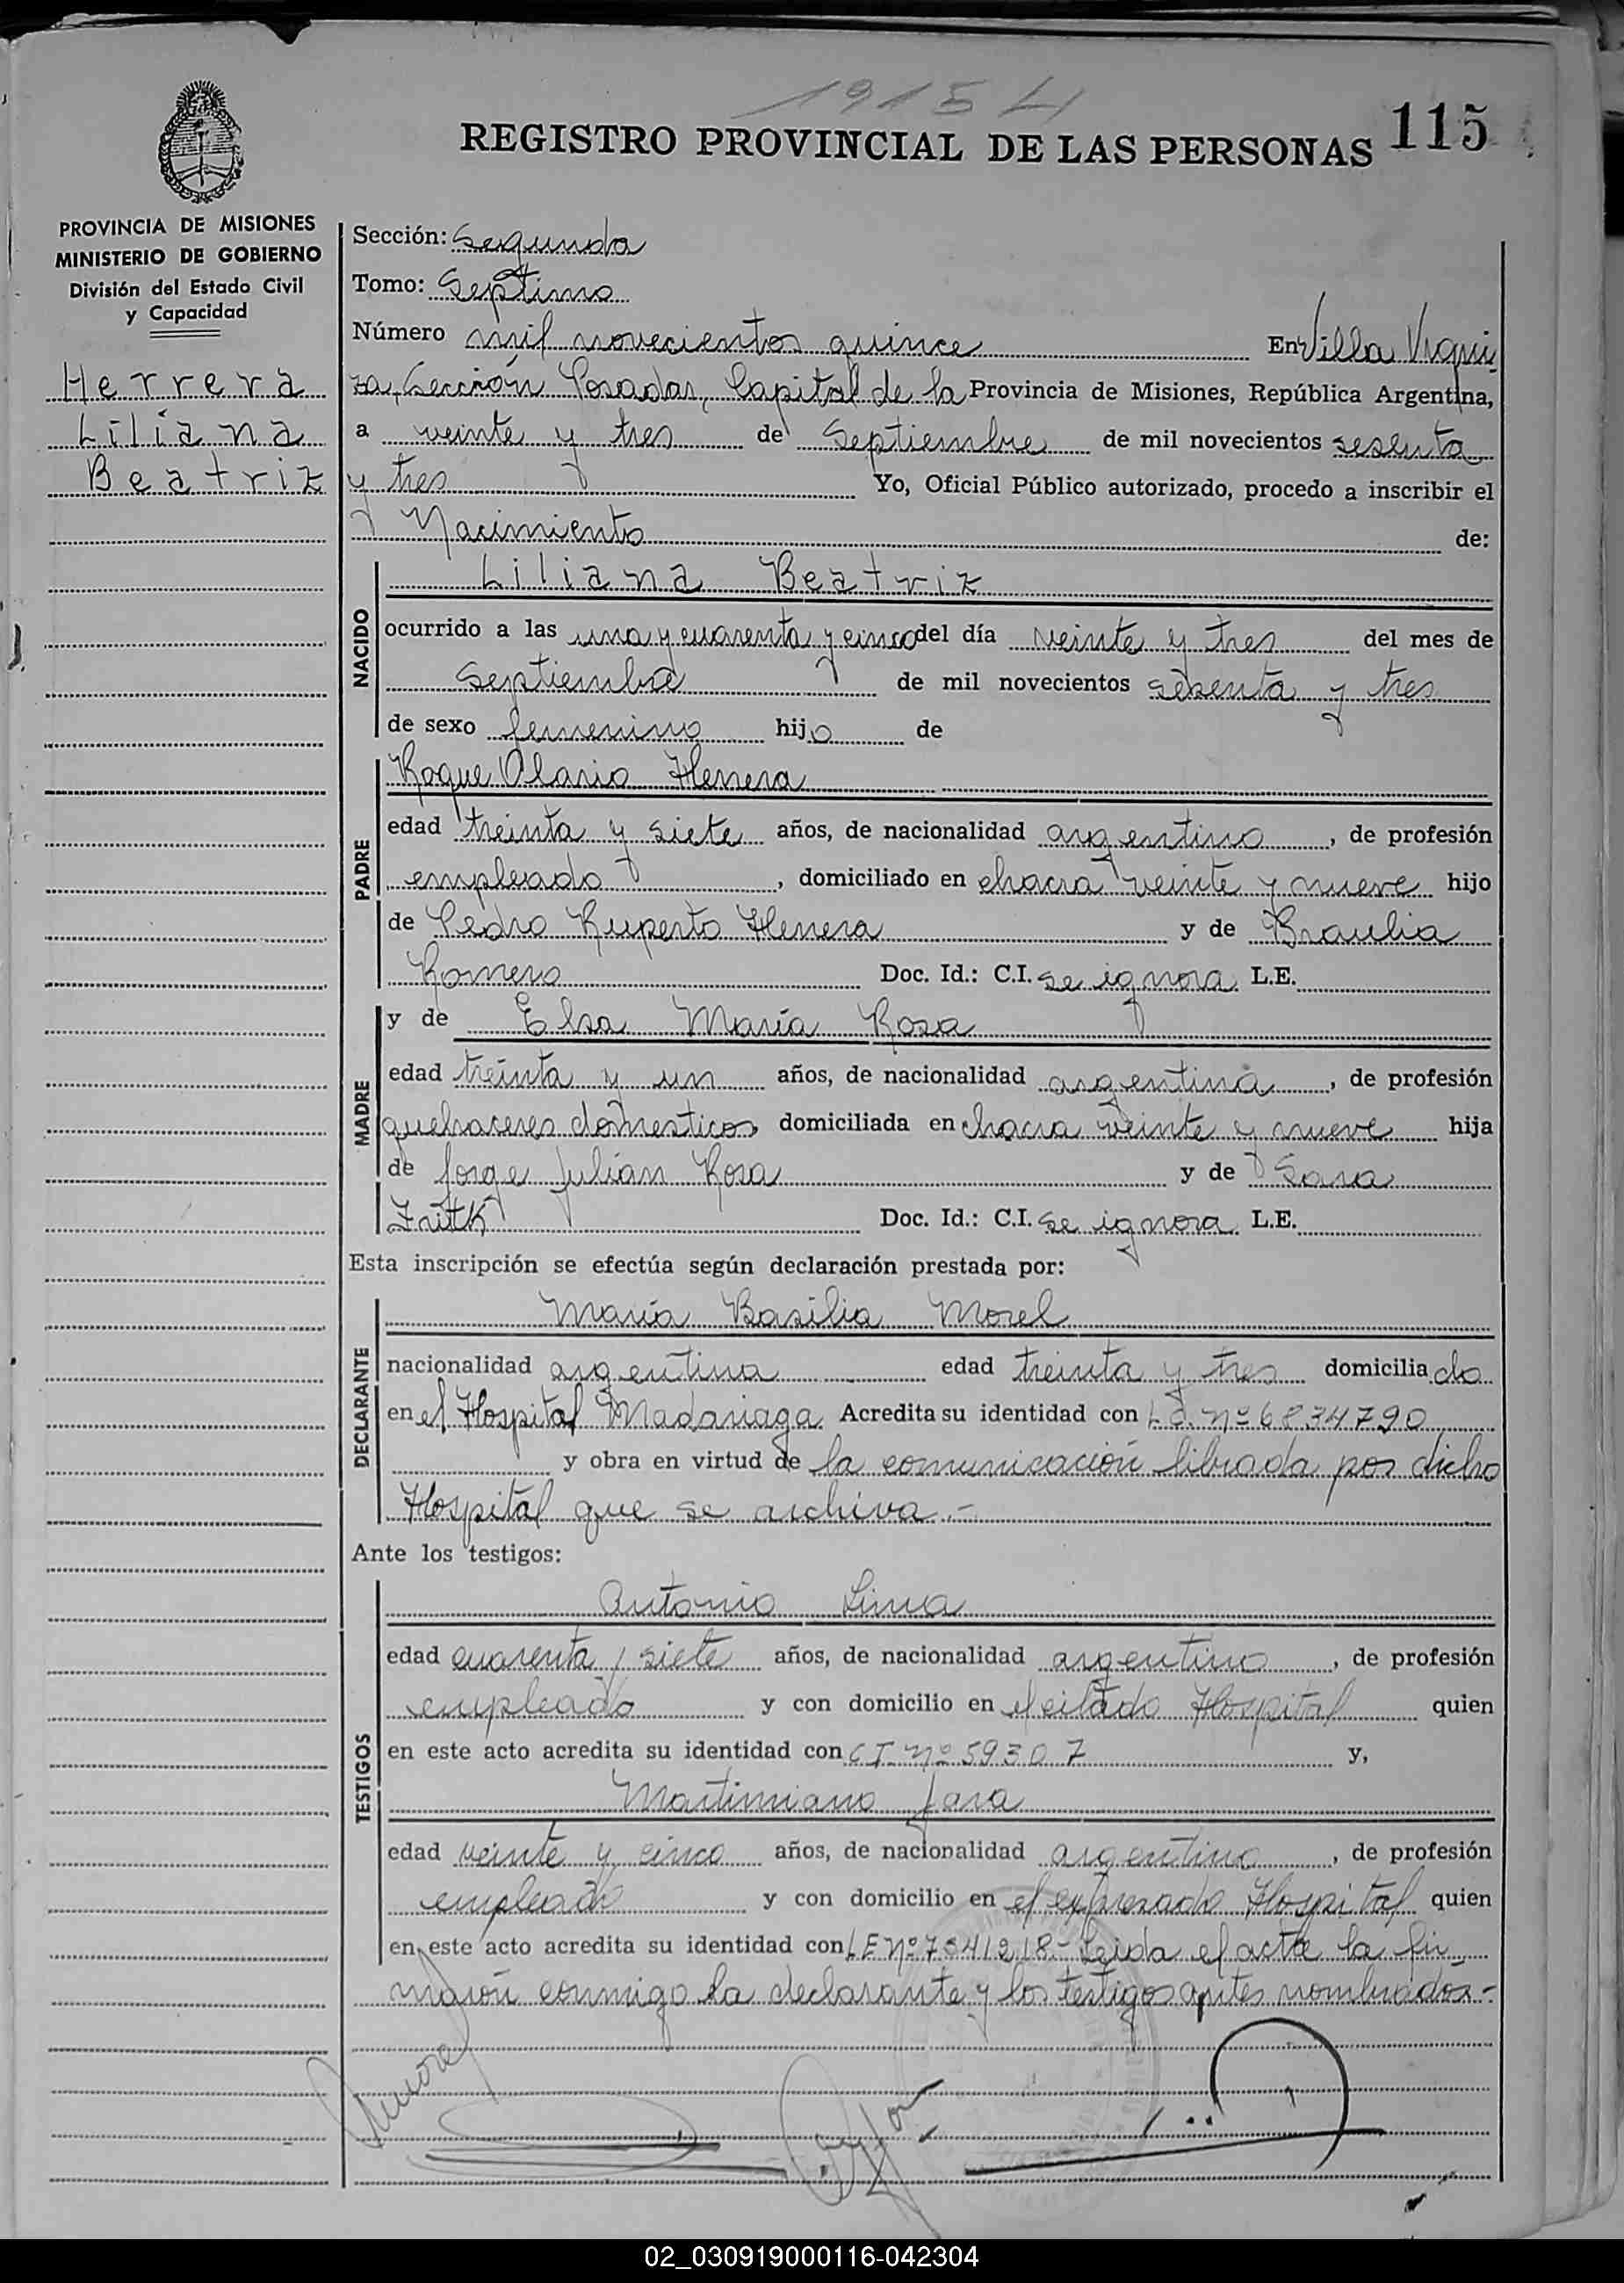 1915 L
REGISTRO PROVINCIAL DE LAS PERSONAS 115
PROVINCIA DE MISIONES
MINISTERIO DE GOBIERNO
División del Estado Civil
y Capacidad
Herrera
Liliana
Beatriz
Sección: Segunda
Tomo: Septimo
Número mil novecientos quince En Villa Urqui
za, Sección Posadas, Capital de la Provincia de Misiones, República Argentina,
a veinte y tres de Septiembre de mil novecientos sesenta
y tres Yo, Oficial Público autorizado, procedo a inscribir el
Nacimiento de:
NACIDO
Liliana Beatriz
ocurrido a las una y cuarenta y cinco del día veinte y tres del mes de
Septiembre de mil novecientos sesenta y tres
de sexo femenino hijo de
PADRE
Roque Olario Herrera
edad treinta y siete años, de nacionalidad argentino, de profesión
empleado, domiciliado en chacra veinte y nueve hijo
de Pedro Ruperto Herrera y de Braulia
Romero Doc. Id.: C.I. se ignora L.E.
MADRE
y de Elsa María Rosa
edad treinta y un años, de nacionalidad argentina, de profesión
quehaceres domesticos domiciliada en chacra veinte y nueve hija
de Jorge Julián Rosa y de Sara
Doc. Id.: C.I. se ignora L.E.
Esta inscripción se efectúa según declaración prestada por:
DECLARANTE
María Basilia Morel
nacionalidad argentina edad treinta y tres domiciliado
en el Hospital Madariaga Acredita su identidad con L.C. Nº 6834790
y obra en virtud de la comunicación librada por dicho
Hospital que se archiva.-
Ante los testigos:
TESTIGOS
Antonio Lima
edad cuarenta y siete años, de nacionalidad argentino, de profesión
empleado y con domicilio en el citado Hospital quien
en este acto acredita su identidad con C I Nº 59307 y,
Martimiano Jara
edad veinte y cinco años, de nacionalidad argentino, de profesión
empleado y con domicilio en el expresado Hospital quien
en este acto acredita su identidad con L E Nº 7541218.- Leida el acta la fir
maron conmigo la declarante y los testigos antes nombrados.-
02_030919000116-042304